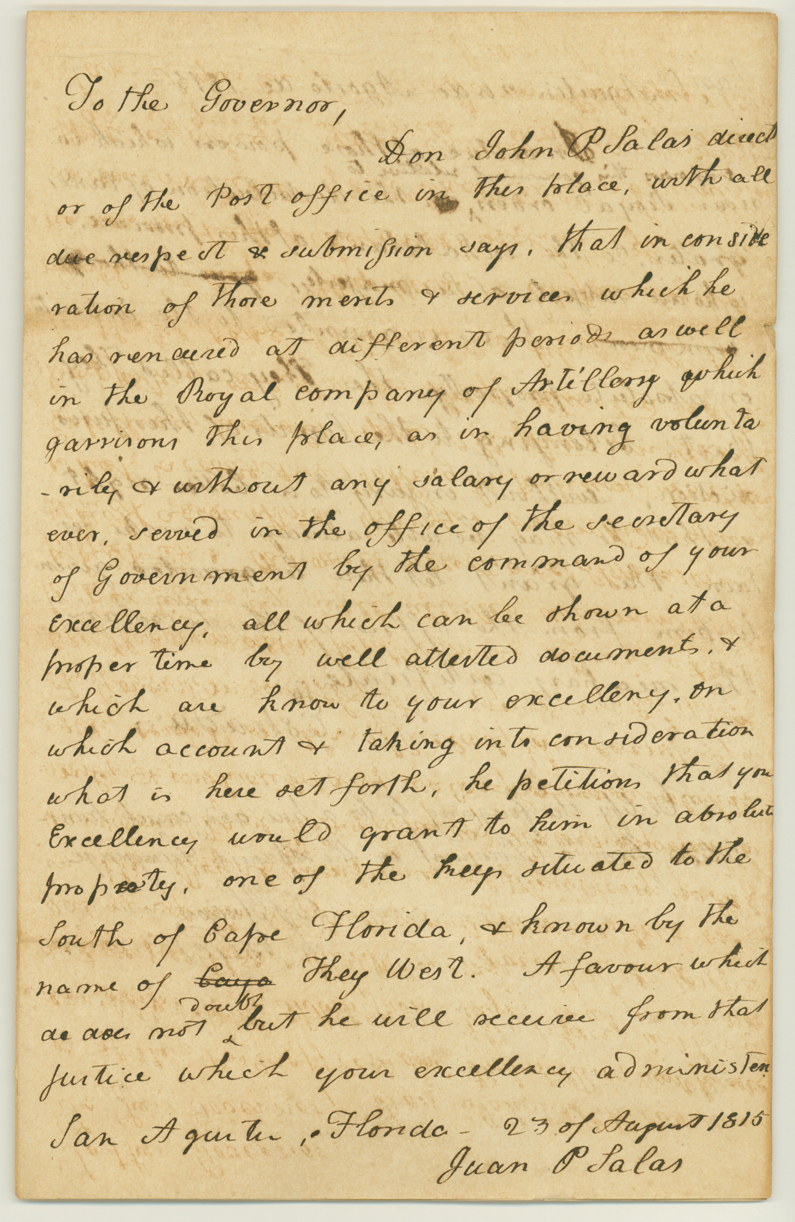 To the Governor,
Don John P Salas direct
or of the Post office in this place, with all
due respect & submission says, that in conside
ration of those merits & services which he
has rendered at different periods as well
in the Royal company of Artillery which
garrisons this place, as in having volunta
-rily & without any salary or reward what
ever, served in the office of the secretary
of Government by the command of your
Excellency, all which can be shown at a
proper time by well attested documents, &
which are know to your excelleny. On
which account & taking into consideration
what is here set forth, he petitions that you
Excellency would grant to him in absolute
property, one of the keys situated to the
South of Cape Florida, & known by the
name of Cayo Key West. A favour which
he does not doubt but he will receive from that
justice which your excellency administers
San Agustin, Florida - 23 of August 1815
Juan P Salas